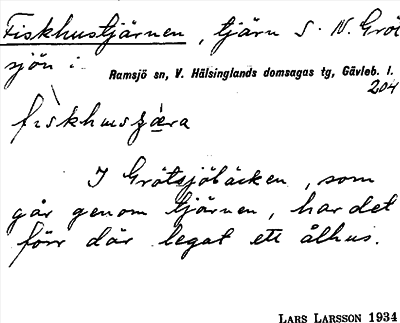 Fiskhustjärnen, tjärn S. N. Gröt
sjön i
Ramsjö sn, V. Hälsinglands domsagas tg, Gävleb. l.
204
I Grötsjöbäcken, som
går genom tjärnen, har det
förr där legat ett ålhus.
LARS LARSSON 1934